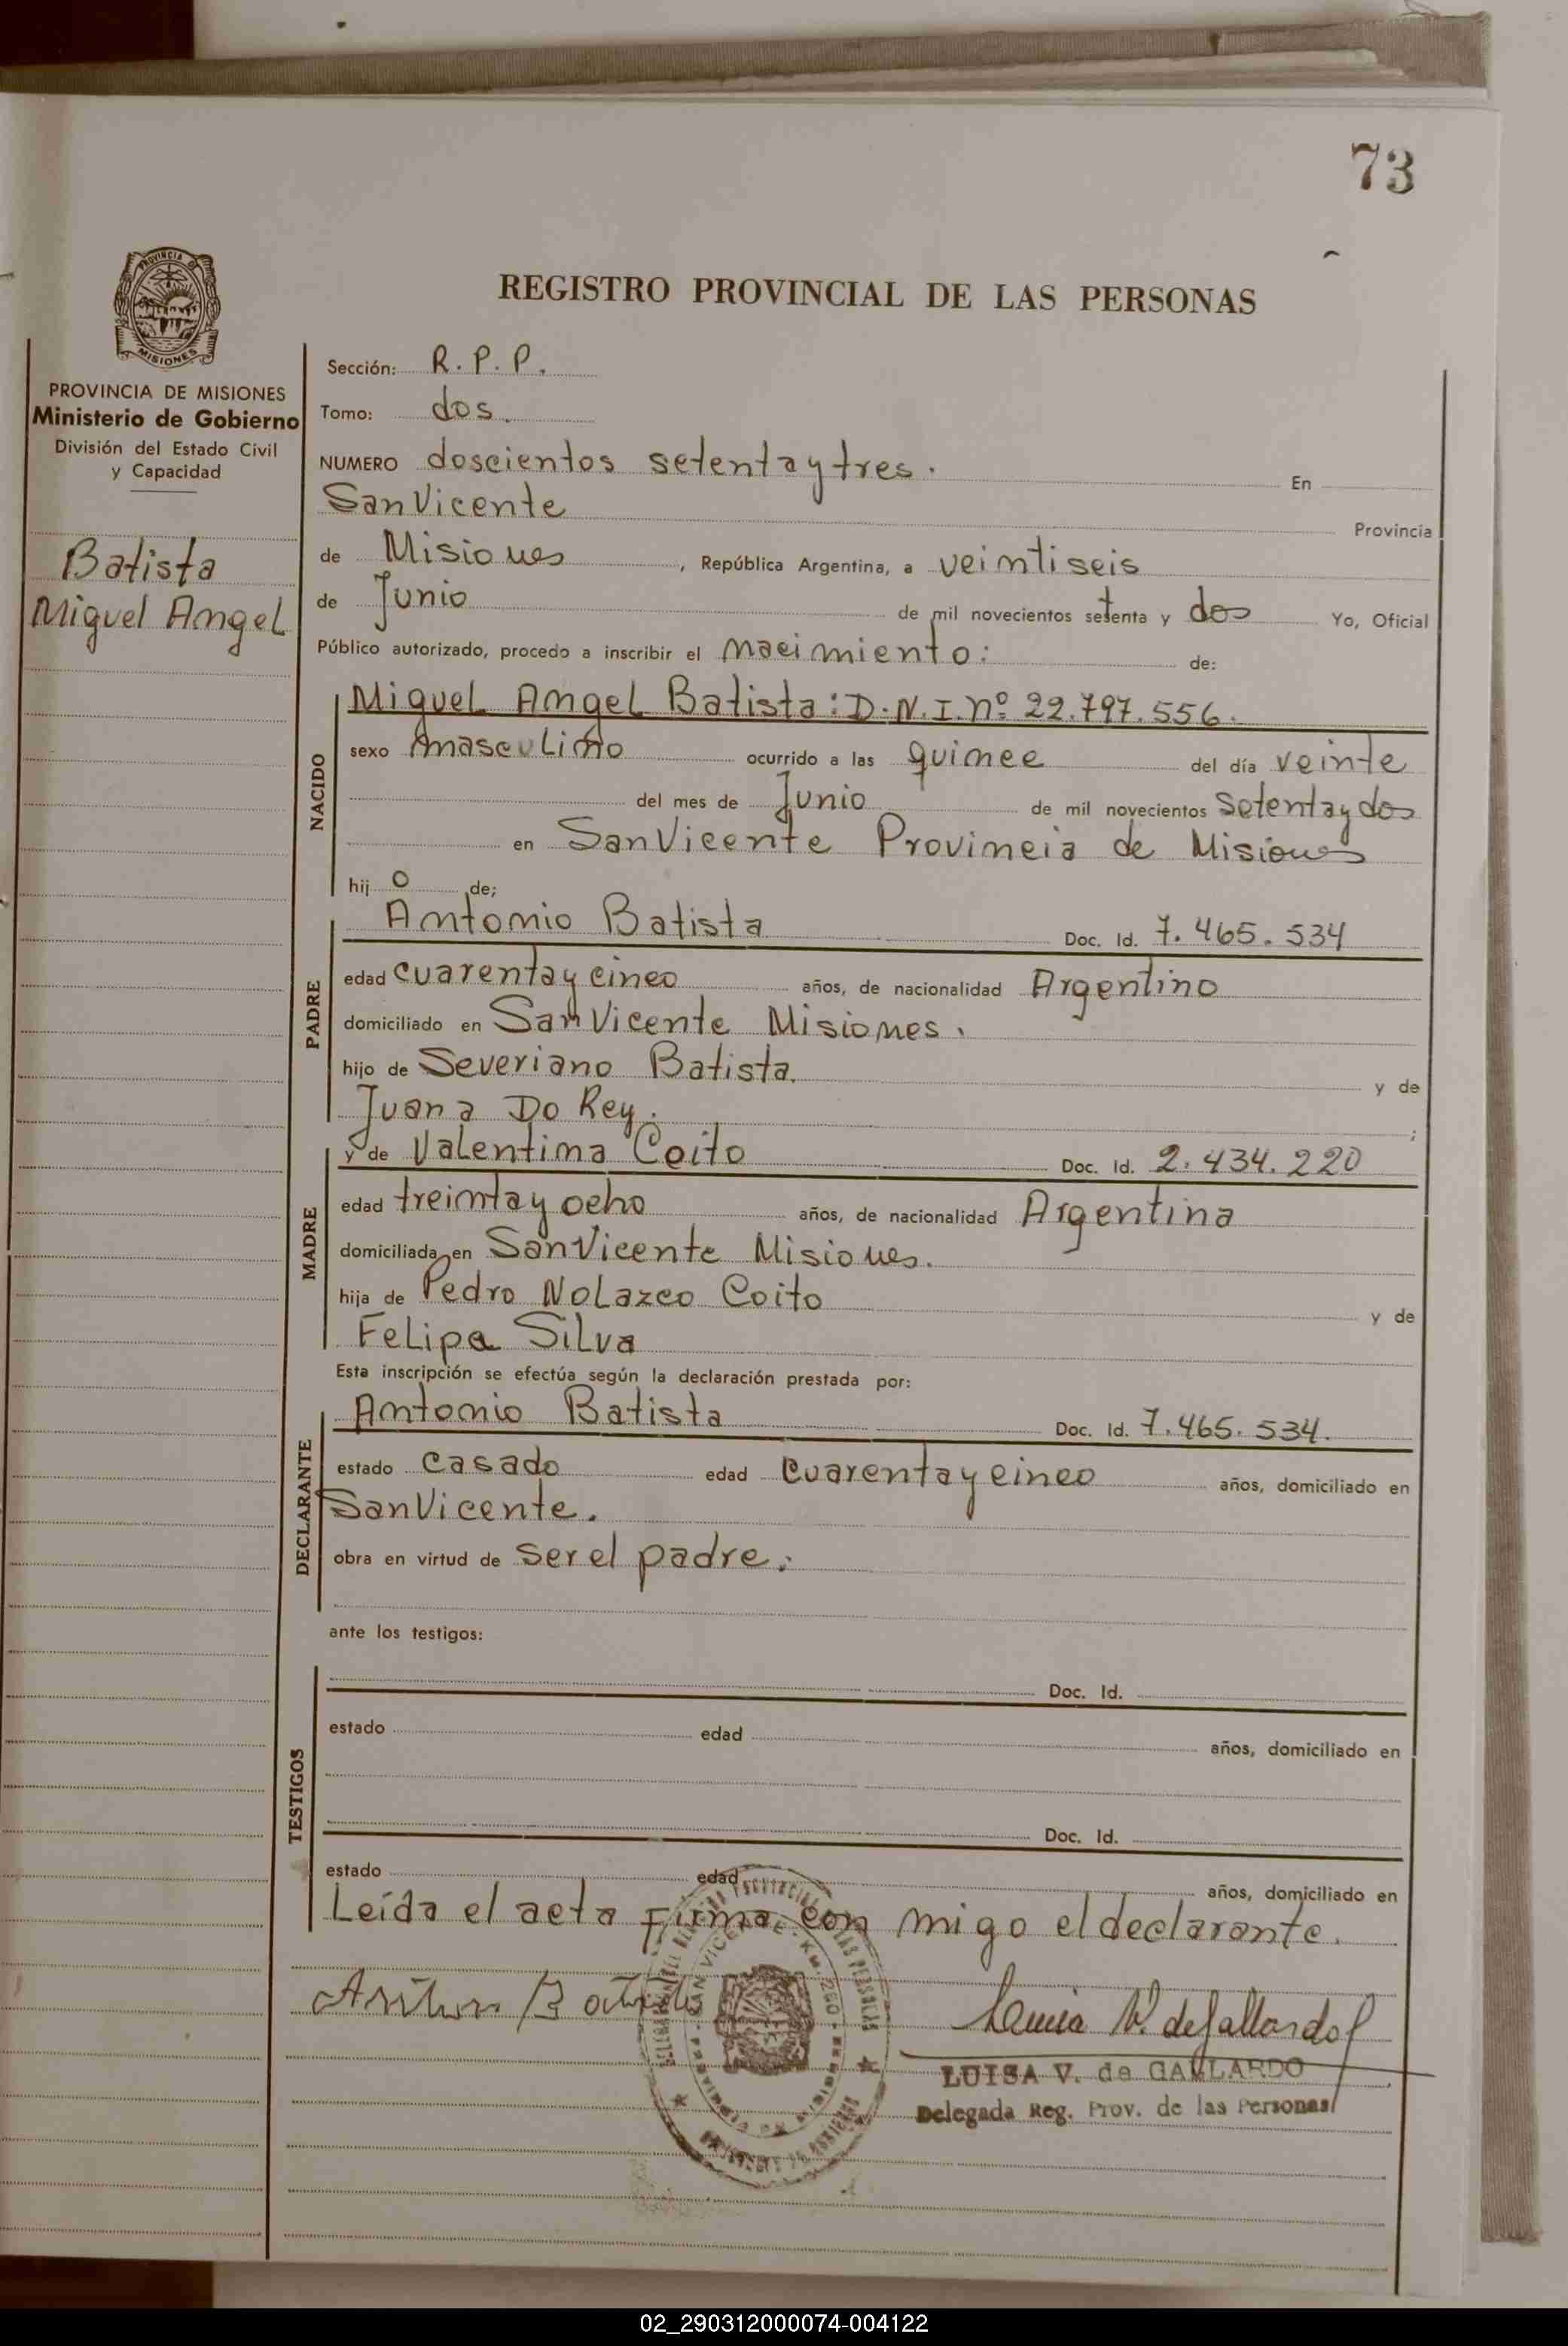 73
REGISTRO PROVINCIAL DE LAS PERSONAS
PROVINCIA DE MISIONES
Ministerio de Gobierno
División del Estado Civil
y Capacidad
Batista
Miguel Angel
Sección: R.P.P.
Tomo: dos.
NUMERO doscientos setenta y tres. En
San Vicente Provincia
de Misiones, República Argentina, a veintiseis
de Junio de mil novecientos setenta y dos Yo, Oficial
Público autorizado, procedo a inscribir el nacimiento: de:
NACIDO
Miguel Angel Batista: D.N.I. nº 22.797.556.
sexo masculino ocurrido a las quince del día veinte
del mes de Junio de mil novecientos setenta y dos
en San Vicente Provincia de Misiones
hij o de;
PADRE
Antonio Batista Doc. Id. 7.465.534
edad cuarenta y cinco años, de nacionalidad Argentino
domiciliado en San Vicente Misiones.
hijo de Severiano Batista. y de
Juana Do Rey. ;
MADRE
y de Valentina Coito Doc. Id. 2.434.220
edad treinta y ocho años, de nacionalidad Argentina
domiciliada en San Vicente Misiones.
hija de Pedro Nolazco Coito y de
Felipa Silva
Esta inscripción se efectúa según la declaración prestada por:
DECLARANTE
Antonio Batista Doc. Id. 7.465.534.
estado casado edad cuarenta y cinco años, domiciliado en
San Vicente.
obra en virtud de ser el padre.
ante los testigos:
TESTIGOS
Doc. Id.
estado edad años, domiciliado en
Doc. Id.
estado edad años, domiciliado en
Leída el acta firma con migo el declarante.
Luisa V. de Gallardo
LUISA V. de GALLARDO
Delegada Reg. Prov. de las Personas
02_290312000074-004122